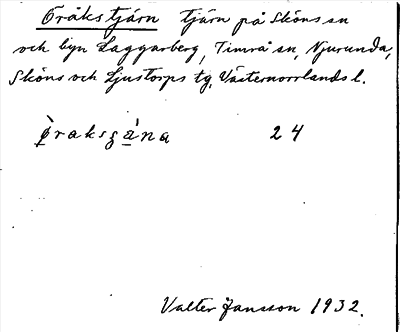 Öråkstjärn tjärn på Sköns sn
och byn Laggarberg, Timrå sn, Njurunda,
Sköns och Ljustorps tg, Västernorrlands l.
24
Valter Jansson 1932.